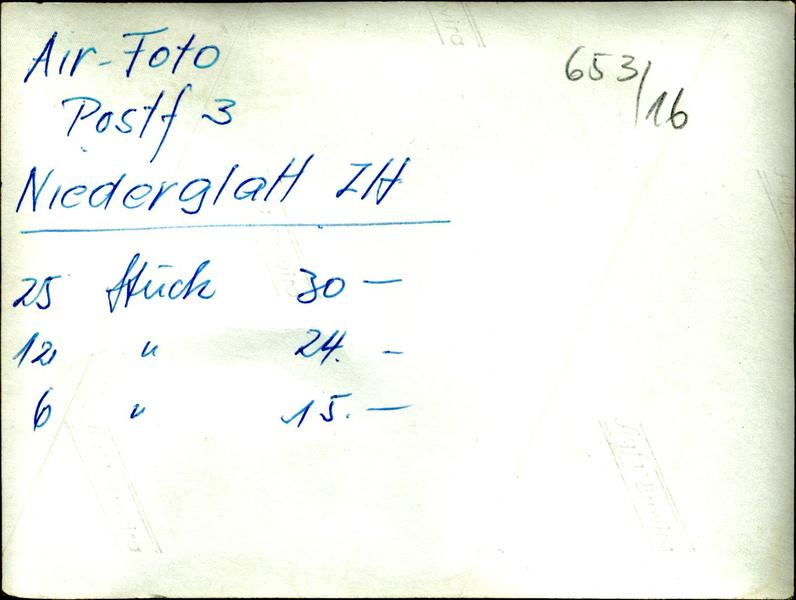 Air-Foto
653/16
Postf 3
Niederglatt ZH
25 Stück 30 —
12 " 24. —
6 " 15. —